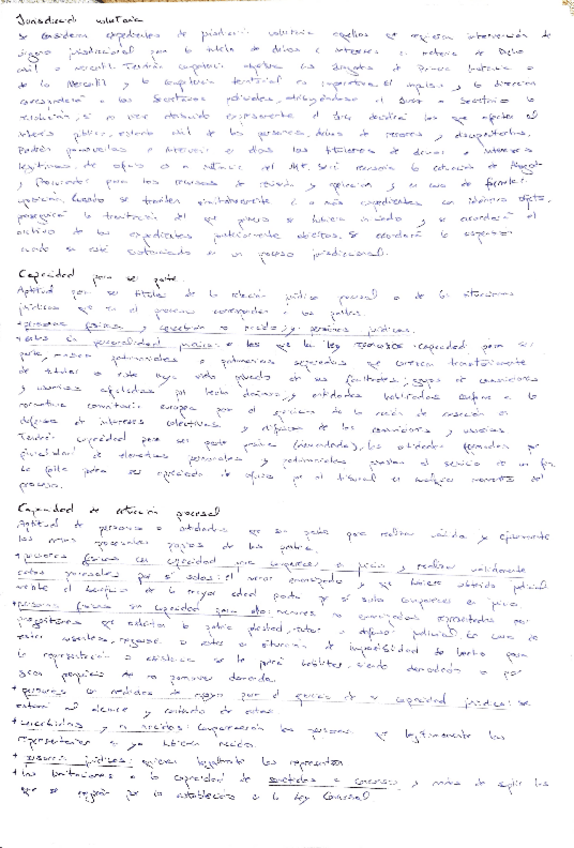 Jurisdicción voluntaria
Se consideran expedientes de jurisdicción voluntaria aquellos que requieran intervención de
órgano jurisdiccional para la tutela de derechos e intereses en materia de Derecho
civil o mercantil. Tendrán competencia objetiva los Juzgados de Primera Instancia o
de lo Mercantil y la competencia territorial no imperativa. El impulso y la dirección
corresponderá a los Secretarios judiciales, atribuyéndose al Juez o Secretario la
resolución, si no viene atribuido expresamente el Juez decidirá los que afecten al
interés público, estado civil de las personas, derechos de menores y discapacitados.
Podrán promoverlos e intervenir en ellos los titulares de derechos o intereses
legítimos, de oficio o a instancia del M.F. Será necesaria la actuación de Abogado
y Procurador para los recursos de revisión y apelación y en caso de formular
oposición. Cuando se tramiten simultáneamente 2 o más expedientes con idéntico objeto,
proseguirá la tramitación del que primero se hubiera iniciado y se acordará el
archivo de los expedientes posteriormente incoados. Se acordará la suspensión
cuando se esté sustanciando en un proceso jurisdiccional.
Capacidad para ser parte
Aptitud por ser titular de la relación jurídica procesal o de las situaciones
jurídicas que en el proceso corresponden a las partes.
+personas físicas y concebido no nacido; y personas jurídicas.
+entes sin personalidad jurídica: a los que la ley reconoce capacidad para ser
parte, masas patrimoniales o patrimonios separados que carezcan transitoriamente
de titular o este haya sido privado de sus facultades; grupos de consumidores
y usuarios afectados por hecho dañoso, y entidades habilitadas conforme a la
normativa comunitaria europea por el ejercicio de la acción de cesación en
defensa de intereses colectivos y difusos de los consumidores y usuarios.
Tendrán capacidad para ser parte pasiva (demandada), las entidades formadas por
pluralidad de elementos personales y patrimoniales puestos al servicio de un fin.
La falta podrá ser apreciada de oficio por el tribunal en cualquier momento del
proceso.
Capacidad de actuación procesal
Aptitud de personas o entidades que son parte para realizar válida y eficazmente
los actos procesales propios de la parte.
+personas físicas con capacidad para comparecer en juicio y realizar válidamente
actos procesales por sí solos: el menor emancipado y que hubiere obtenido judicial
mente el beneficio de la mayor edad podrá por sí solo comparecer en juicio.
+personas físicas sin capacidad para ello: menores no emancipados representados por
progenitores que ostenten la patria potestad, tutor o defensor judicial. En caso de
la representación o asistencia en lo
+personas con medidas de apoyo para el ejercicio de su capacidad jurídica: se
estará al alcance y contenido de estas.
+concebidos y no nacidos: comparecerán las personas que legítimamente los
representarían si ya hubieran nacido.
+ personas jurídicas: quienes legalmente las representen
+ Las limitaciones a la capacidad de sometidos a concurso y modos de suplir las
que se regirán por lo establecido en la Ley Concursal